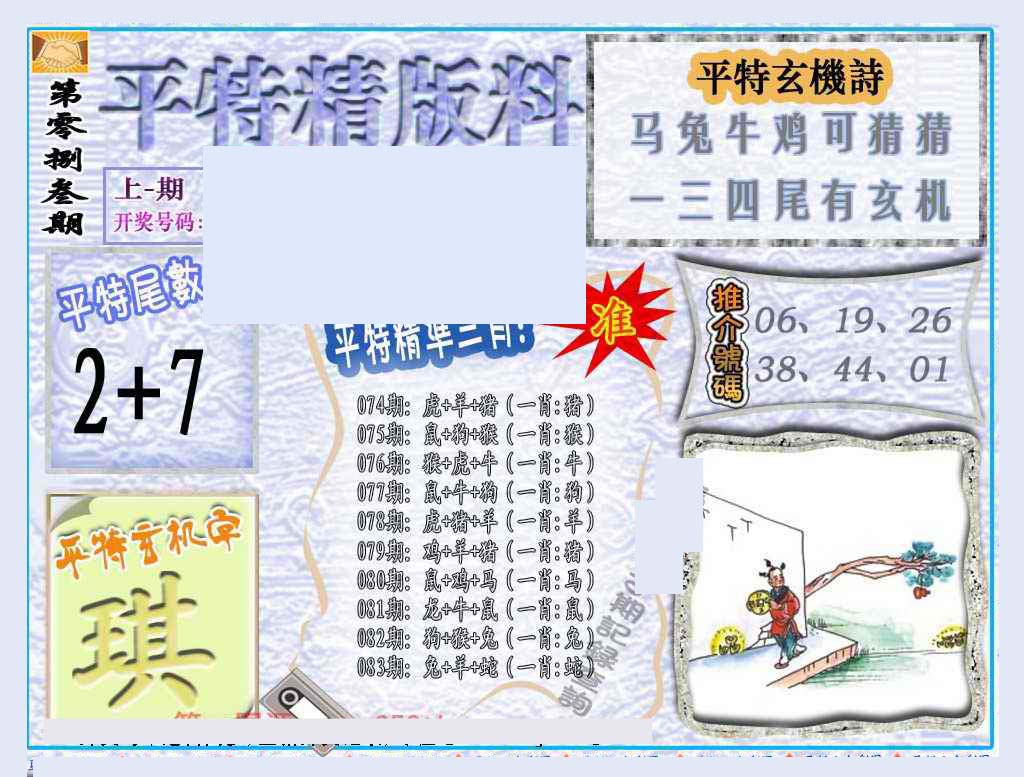 第零捌叁期
平特精版料
上-期
开奖号码:
平特玄機詩
马兔牛鸡可猜猜
一三四尾有玄机
平特尾數
2+7
平特精準三肖!
准
074期: 虎+羊+猪(一肖:猪)
075期: 鼠+狗+猴(一肖:猴)
076期: 猴+虎+牛(一肖:牛)
077期: 鼠+牛+狗(一肖:狗)
078期: 虎+猪+羊(一肖:羊)
079期: 鸡+羊+猪(一肖:猪)
080期: 鼠+鸡+马(一肖:马)
081期: 龙+牛+鼠(一肖:鼠)
082期: 狗+猴+兔(一肖:兔)
083期: 兔+羊+蛇(一肖:蛇)
期記錄查詢
推介號碼
06、19、26
38、44、01
平特玄机字
琪